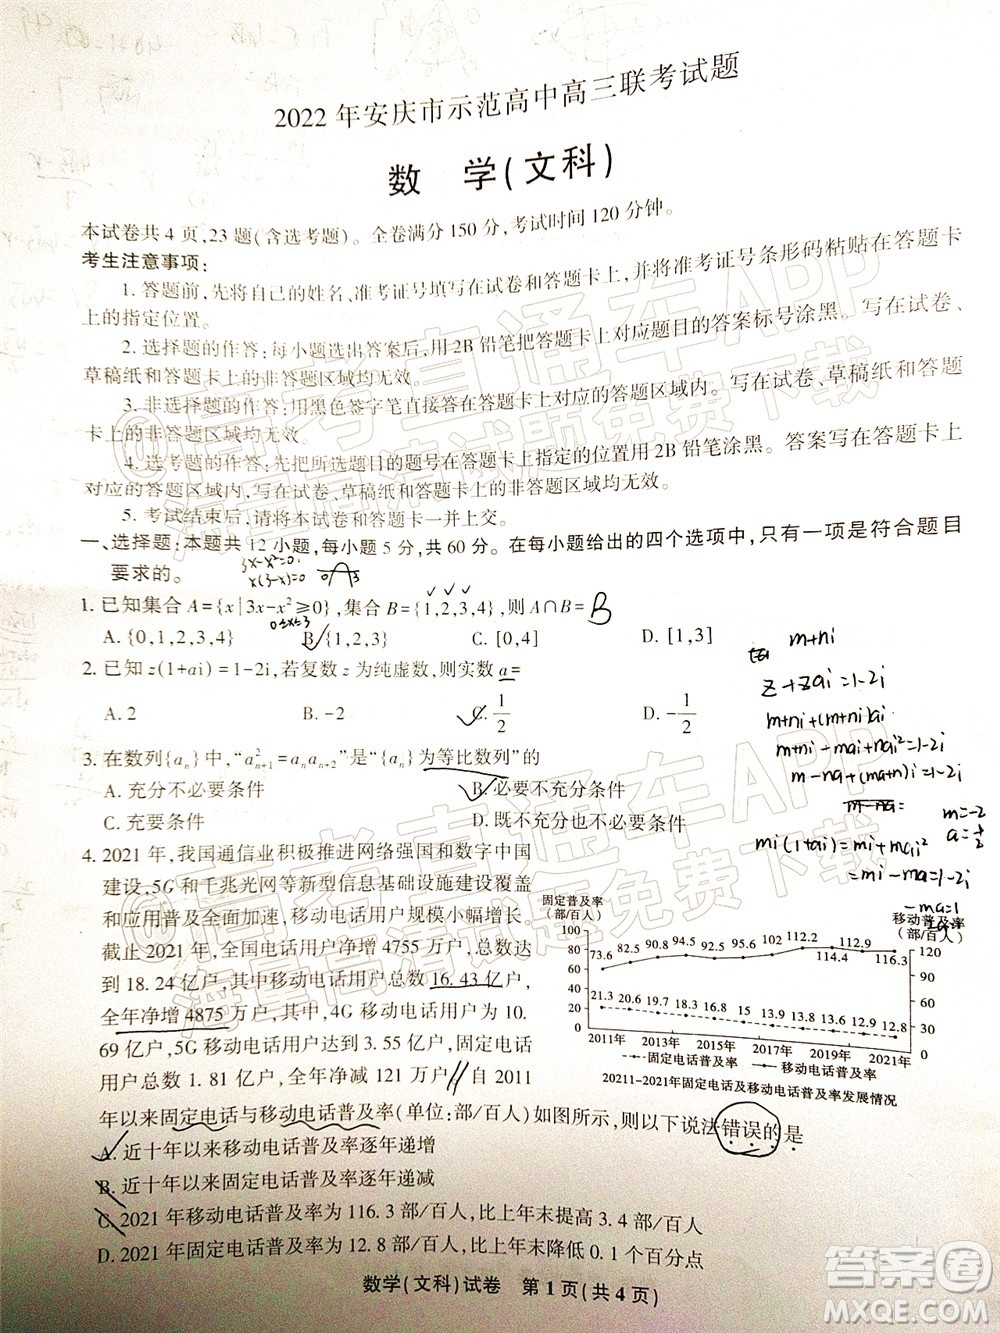 2022年安庆市示范高中高三联考试题
数 学(文科)
本试卷共4页,23题(含选考题)。全卷满分150分,考试时间120分钟。
考生注意事项:
1. 答题前,先将自己的姓名、准考证号填写在试卷和答题卡上,并将准考证号条形码粘贴在答题卡
上的指定位置。
2. 选择题的作答:每小题选出答案后,用2B铅笔把答题卡上对应题目的答案标号涂黑。写在试卷、
草稿纸和答题卡上的非答题区域均无效。
3. 非选择题的作答:用黑色签字笔直接答在答题卡上对应的答题区域内。写在试卷、草稿纸和答题
卡上的非答题区域均无效。
4. 选考题的作答:先把所选题目的题号在答题卡上指定的位置用2B铅笔涂黑。答案写在答题卡上
对应的答题区域内,写在试卷、草稿纸和答题卡上的非答题区域均无效。
5. 考试结束后,请将本试卷和答题卡一并上交。
一、选择题:本题共12小题,每小题5分,共60分。在每小题给出的四个选项中,只有一项是符合题目
要求的。
3x-x²=0
x(3-x)=0
0 3
1. 已知集合A={x|3x-x²≥0},集合B={1,2,3,4},则A∩B= B
0≤x≤3
A. {0,1,2,3,4} B. {1,2,3} C. [0,4] D. [1,3]
2. 已知z(1+ai)=1-2i,若复数z为纯虚数,则实数a=
A. 2 B. -2 C. 1/2 D. -1/2
m+ni
z+zai=1-2i
m+ni+(m+ni)ai
m+ni-mai+nai²=1-2i
m-na+(ma+n)i=1-2i
m-na=
m=-2
a=1/2
mi(1+ai)=mi+mai²
=mi-ma=1-2i
-ma=1
3. 在数列{aₙ}中,“a²ₙ₊₁=aₙaₙ₊₂”是“{aₙ}为等比数列”的
A. 充分不必要条件 B. 必要不充分条件
C. 充要条件 D. 既不充分也不必要条件
4. 2021年,我国通信业积极推进网络强国和数字中国
建设,5G和千兆光网等新型信息基础设施建设覆盖
和应用普及全面加速,移动电话用户规模小幅增长。
截止2021年,全国电话用户净增4755万户,总数达
到18.24亿户,其中移动电话用户总数16.43亿户,
全年净增4875万户,其中,4G移动电话用户为10.
69亿户,5G移动电话用户达到3.55亿户,固定电话
用户总数1.81亿户,全年净减121万户。自2011
年以来固定电话与移动电话普及率(单位:部/百人)如图所示,则以下说法错误的是
固定普及率
(部/百人)
移动普及率
(部/百人)
100
90
80
70
60
50
40
30
20
10
0
120
100
80
60
40
20
0
73.6 82.5 90.8 94.5 92.5 95.6 102 112.2 114.4 112.9 116.3
21.3 20.6 19.7 18.3 16.8 15 13.9 13.8 13.6 12.9 12.8
2011年 2013年 2015年 2017年 2019年 2021年
固定电话普及率 移动电话普及率
20211-2021年固定电话及移动电话普及率发展情况
A. 近十年以来移动电话普及率逐年递增
B. 近十年以来固定电话普及率逐年递减
C. 2021年移动电话普及率为116.3部/百人,比上年末提高3.4部/百人
D. 2021年固定电话普及率为12.8部/百人,比上年末降低0.1个百分点
数学(文科)试卷 第1页(共4页)
@高考直通车APP
海量高清试题免费下载
@高考直通车APP
海量高清试题免费下载
答案圈
MXQE.COM